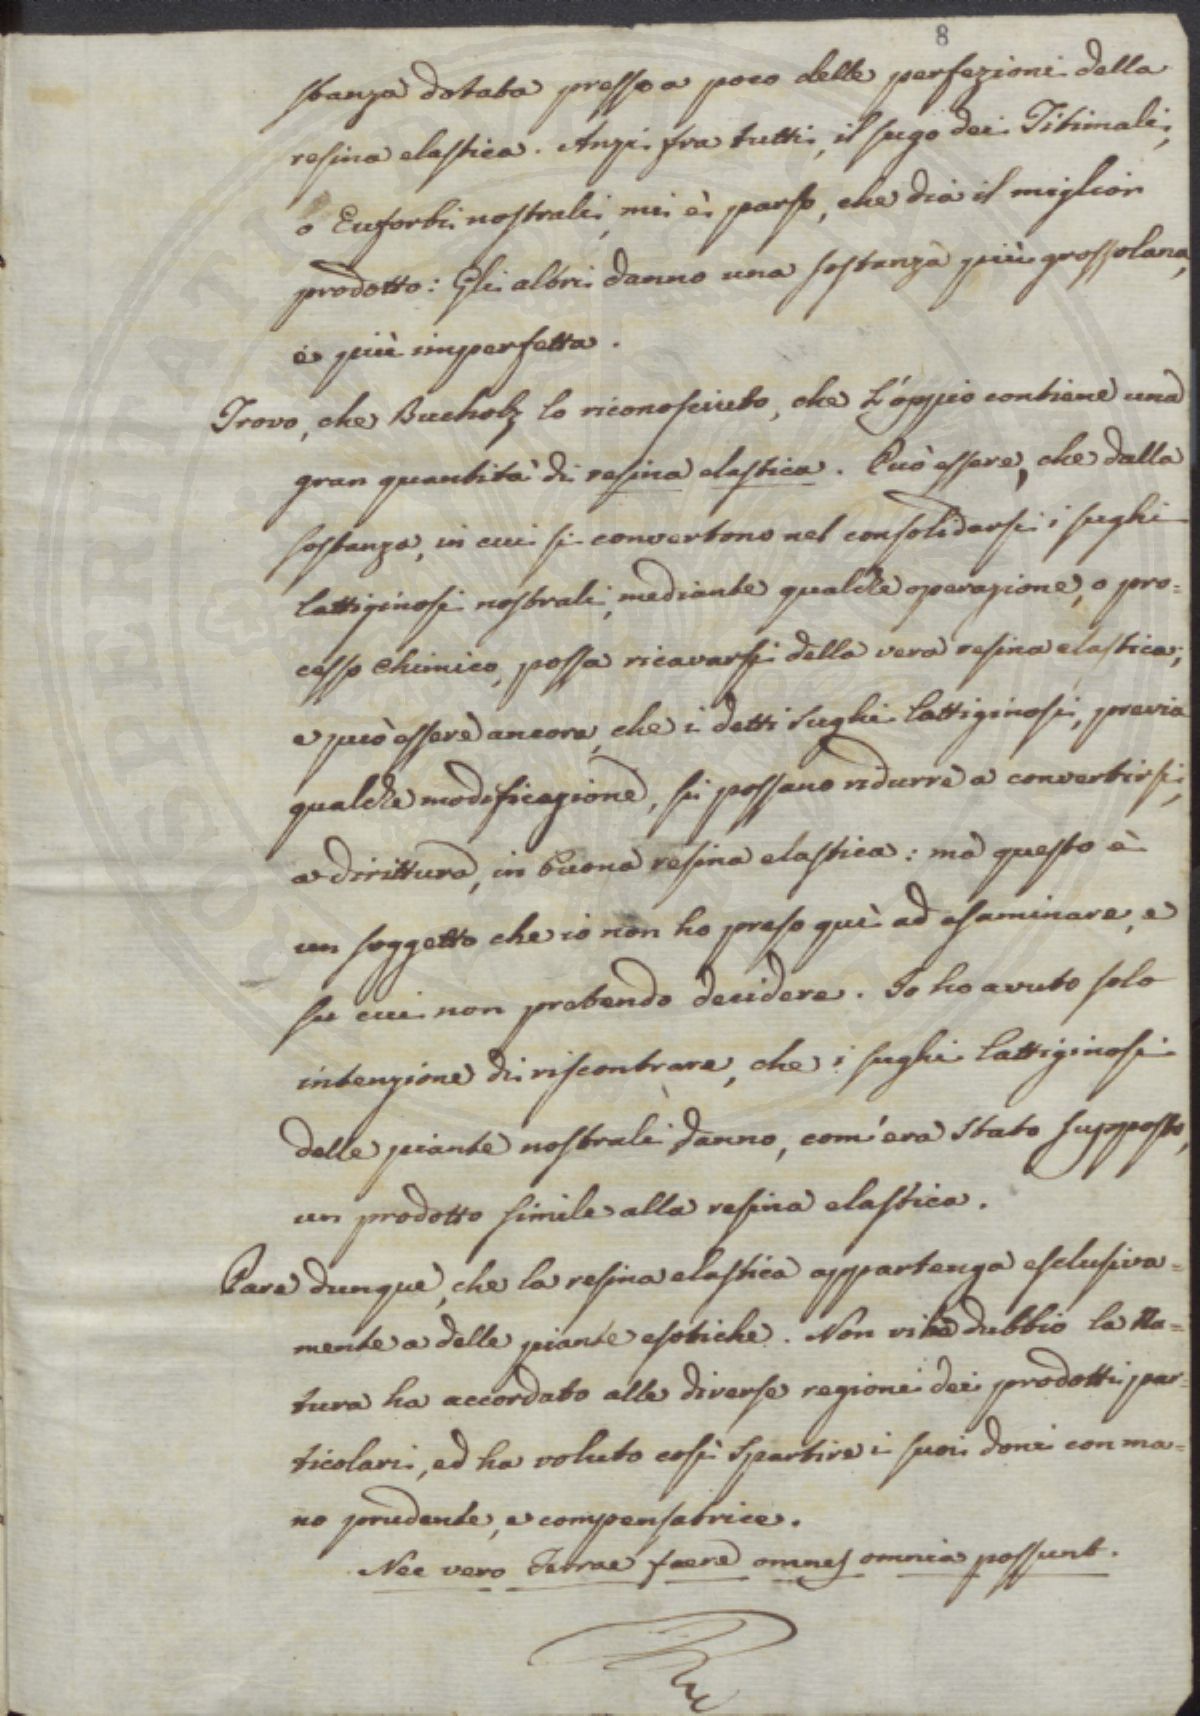 8
stanza dotata presso a poco delle perfezioni della
resina elastica. Anzi fra tutti, il sugo dei Titimali,
o Euforbi nostrali, mi è parso, che dia il miglior
prodotto: Gli altri danno una sostanza più grossolana,
e più imperfetta.
Trovo, che Bucholz lo riconosciuto, che L'oppio contiene una
gran quantità di resina elastica. Può essere, che dalla
sostanza, in cui si convertono nel consolidarsi i sughi
lattiginosi nostrali, mediante qualche operazione, o pro=
cesso chimico, possa ricavarsi della vera resina elastica;
e può essere ancora, che i detti sughi lattiginosi, previa
qualche modificazione, si possano ridurre a convertirsi,
a dirittura, in buona resina elastica: ma questo è
un soggetto che io non ho preso quì ad esaminare, e
su cui non pretendo decidere. Io ho avuto solo
intenzione di riscontrare, che i sughi lattiginosi
delle piante nostrali danno, com'era stato supposto,
un prodotto simile alla resina elastica.
Pare dunque, che la resina elastica appartenga esclusiva=
mente a delle piante esotiche. Non vi ha dubbio la Na=
tura ha accordato alle diverse regioni dei prodotti par=
ticolari, ed ha voluto così spartire i suoi doni con ma=
no prudente, e compensatrice.
Nec vero Terrae ferre omnes omnia possunt.